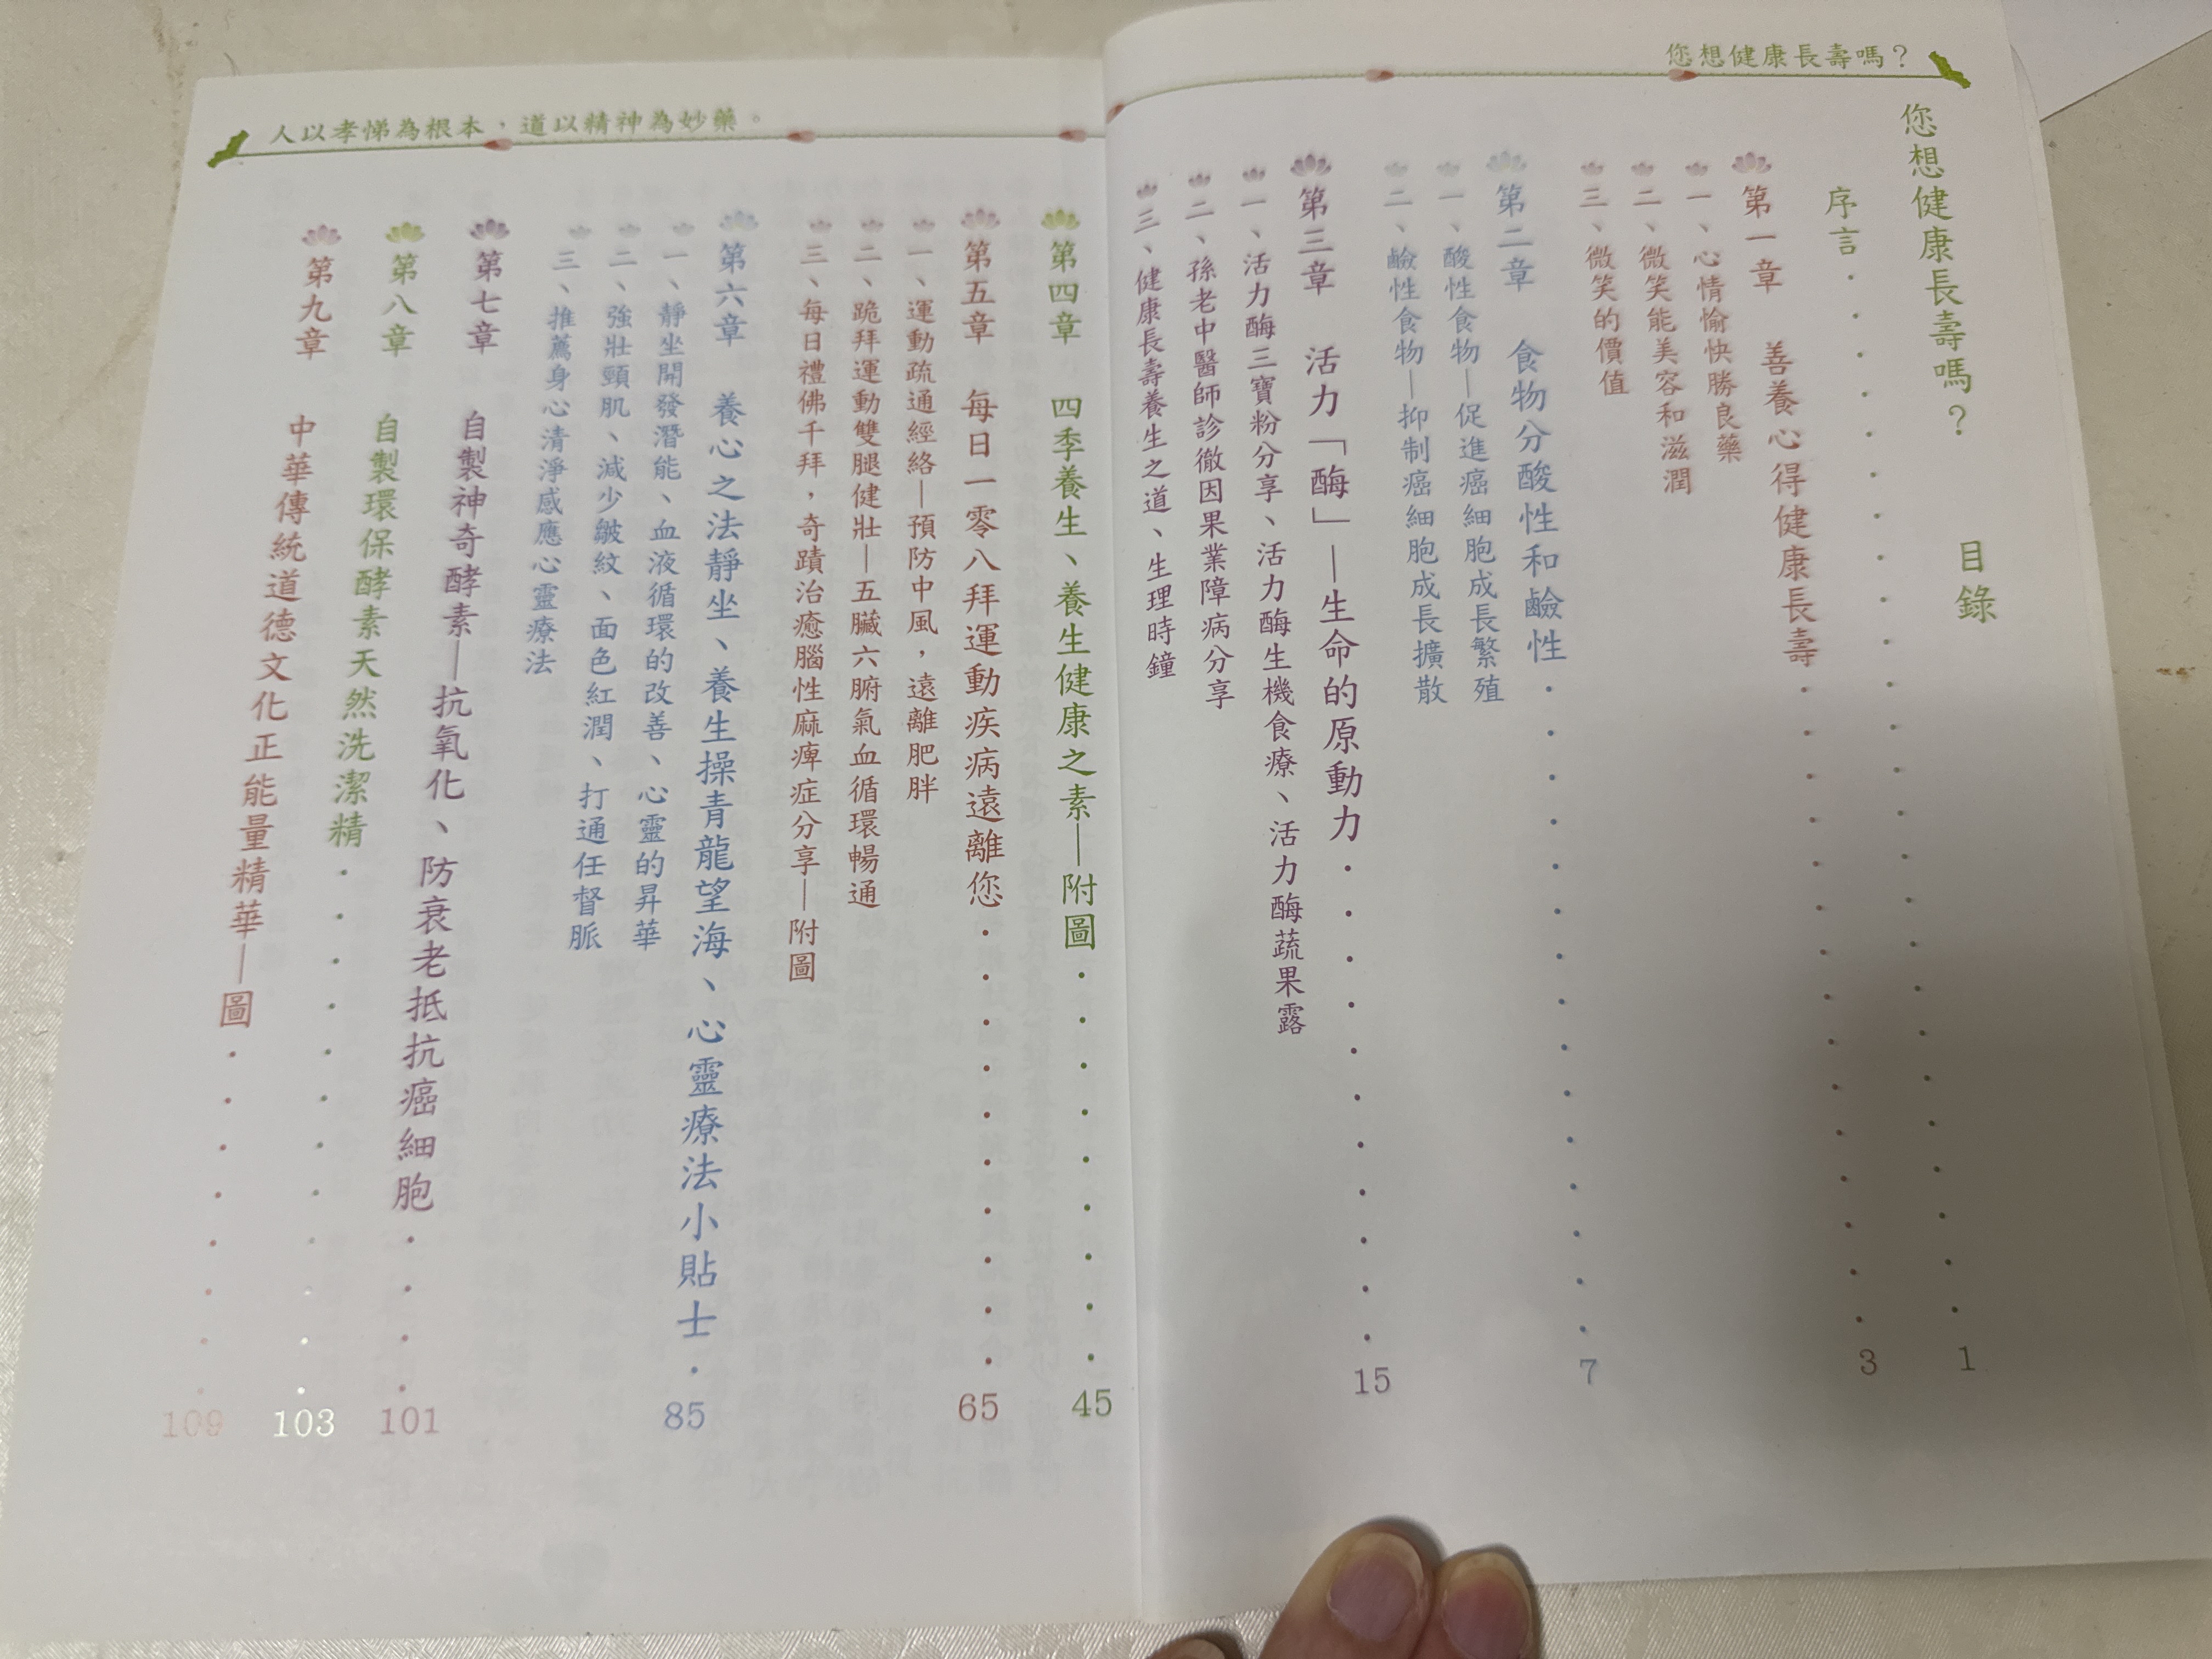 您想健康長壽嗎？
您想健康長壽嗎？ 目錄
序言 1
第一章 善養心得健康長壽 3
一、心情愉快勝良藥
二、微笑能美容和滋潤
三、微笑的價值
第二章 食物分酸性和鹼性 7
一、酸性食物—促進癌細胞成長繁殖
二、鹼性食物—抑制癌細胞成長擴散
第三章 活力「酶」—生命的原動力 15
一、活力酶三寶粉分享、活力酶生機食療、活力酶蔬果露
二、孫老中醫師診徹因果業障病分享
三、健康長壽養生之道、生理時鐘
人以孝悌為根本，道以精神為妙藥。
第四章 四季養生、養生健康之素—附圖 45
第五章 每日一零八拜運動疾病遠離您 65
一、運動疏通經絡—預防中風，遠離肥胖
二、跪拜運動雙腿健壯—五臟六腑氣血循環暢通
三、每日禮佛千拜，奇蹟治癒腦性麻痺症分享—附圖
第六章 養心之法靜坐、養生操青龍望海、心靈療法小貼士 85
一、靜坐開發潛能、血液循環的改善、心靈的昇華
二、強壯頸肌、減少皺紋、面色紅潤、打通任督脈
三、推薦身心清淨感應心靈療法
第七章 自製神奇酵素—抗氧化、防衰老抵抗癌細胞 101
第八章 自製環保酵素天然洗潔精 103
第九章 中華傳統道德文化正能量精華—圖 109